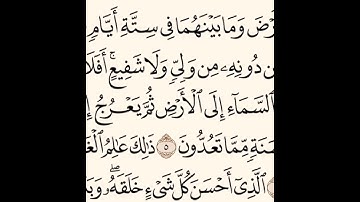 رْضَ وَمَا بَيْنَهُمَا فِي سِتَّةِ أَيَّامٍ
ن دُونِهِۦ مِن وَلِيٍّ وَلَا شَفِيعٍ ۚ أَفَلَا
ٱلسَّمَآءِ إِلَى ٱلْأَرْضِ ثُمَّ يَعْرُجُ إِ
سَنَةٍ مِّمَّا تَعُدُّونَ ٥ ذَٰلِكَ عَٰلِمُ ٱلْغَ
ٱلَّذِىٓ أَحْسَنَ كُلَّ شَىْءٍ خَلَقَهُۥ ۖ وَبَدَ